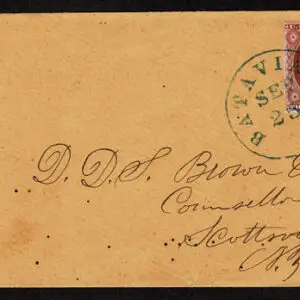 BATAVI
SEP
23
D. D. S. Brown E
Counsello
Scottsv
N.Y